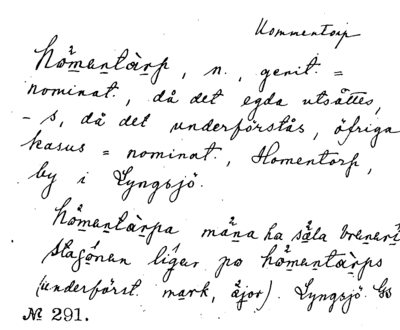 Kommentorp
håmantàrp, n., genit. =
nominat., då det egda utsättes,
-s, då det underförstås, öfriga
kasus = nominat., Homentorp,
by i Lyngsjö.
håmantàrpa måna ha såla
ligar po håmantàrps
(underförst. mark, åjor). Lyngsjö.
№ 291.